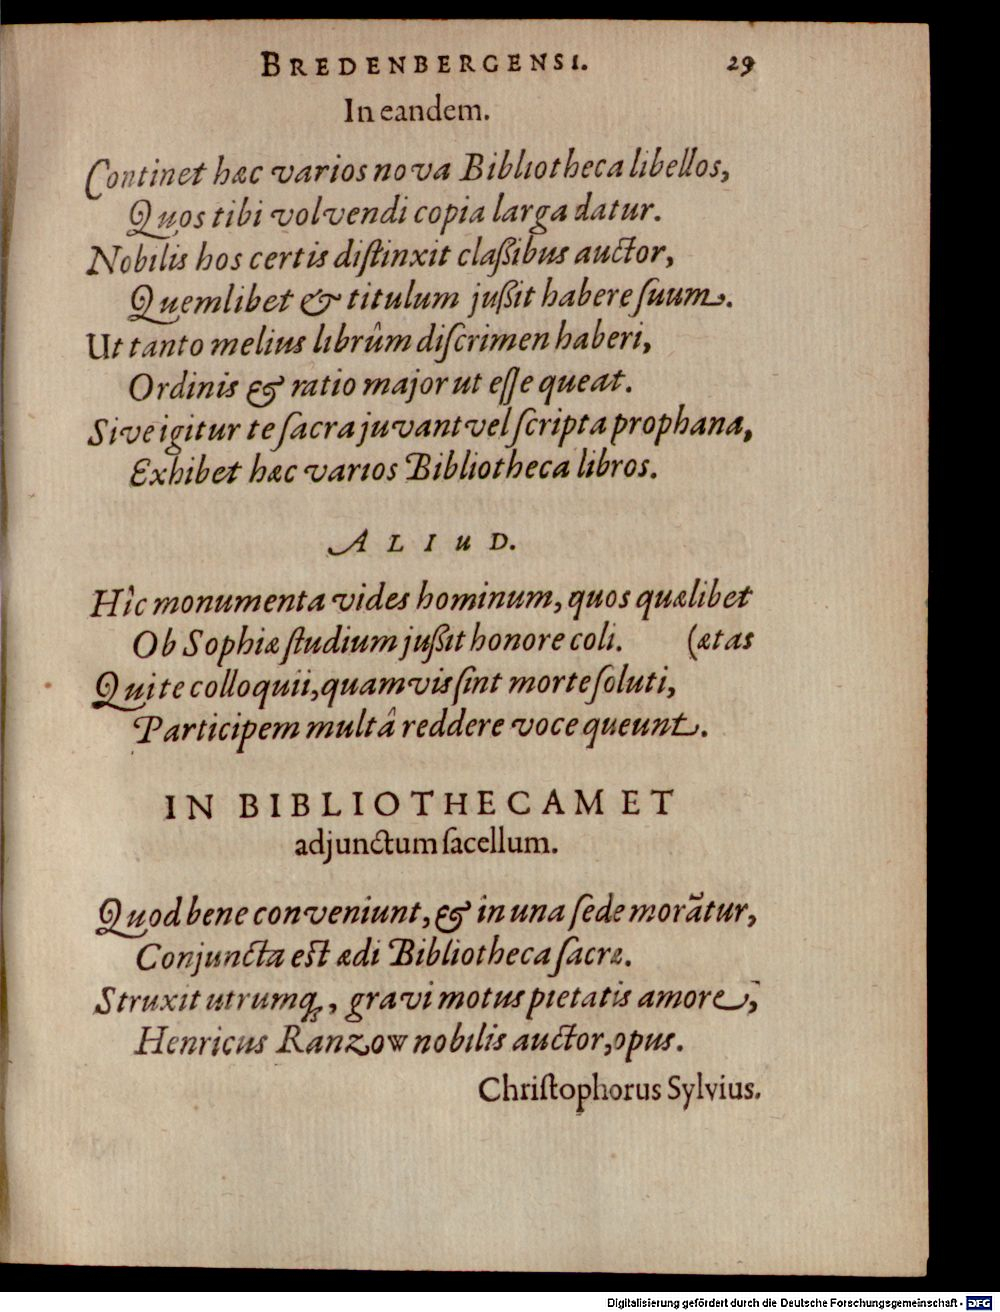 BREDENBERGENSI. 29
In eandem.
Continet hæc varios nova Bibliotheca libellos,
Quos tibi volvendi copia larga datur.
Nobilis hos certis diſtinxit claßibus auctor,
Quemlibet & titulum jußit habere ſuum.
Ut tanto melius librûm diſcrimen haberi,
Ordinis & ratio major ut eſſe queat.
Sive igitur te ſacra juvant vel ſcripta prophana,
Exhibet hæc varios Bibliotheca libros.
ALIUD.
Hîc monumenta vides hominum, quos quælibet
Ob Sophiæ ſtudium jußit honore coli. (ætas
Qui te colloquii, quamvis ſint morte ſoluti,
Participem multâ reddere voce queunt.
IN BIBLIOTHECAM ET
adjunctum ſacellum.
Quod bene conveniunt, & in una ſede morãtur,
Conjuncta est ædi Bibliotheca ſacræ.
Struxit utrumq;, gravi motus pietatis amore,
Henricus Ranzow nobilis auctor, opus.
Chriſtophorus Sylvius.
Digitalisierung gefördert durch die Deutsche Forschungsgemeinschaft - DFG